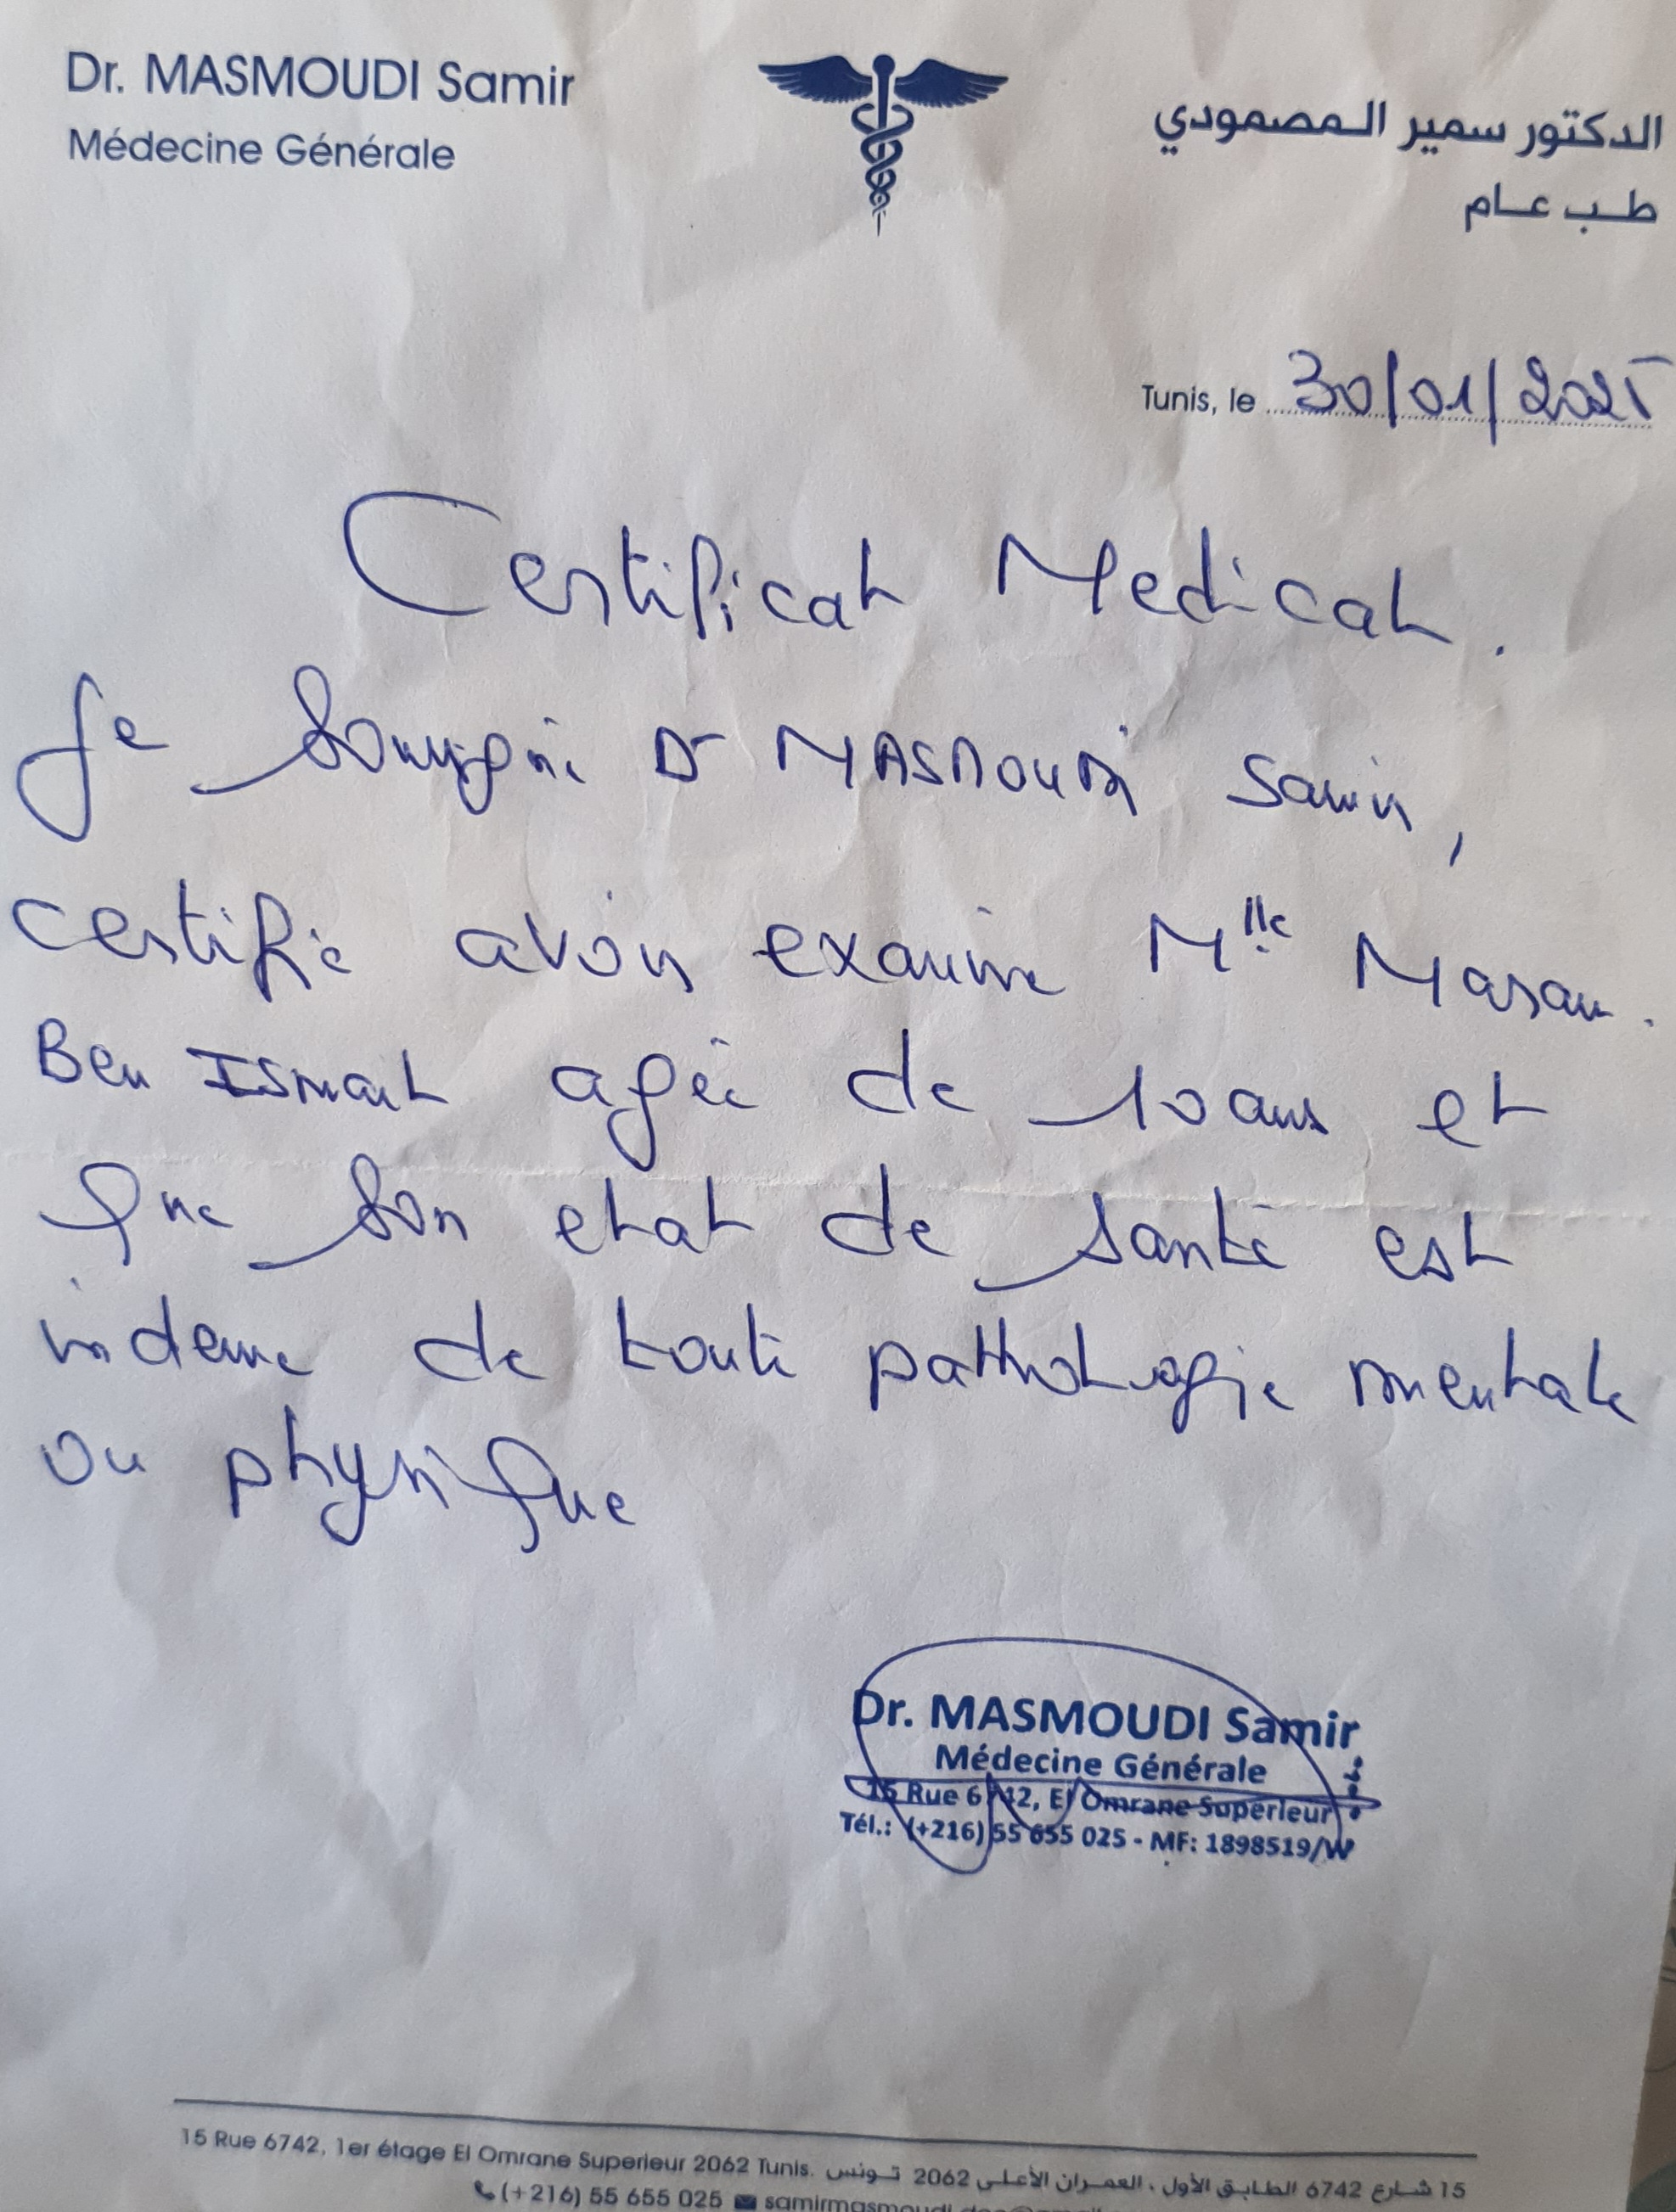 Dr. MASMOUDI Samir
Médecine Générale
الدكتور سمير المصمودي
طب عام
Tunis, le 30/01/2025
Certificat Medical.
Je Soussigné Dr MASMOUDI Samir,
certifie avoir examiné Mlle
Ben Ismail agée de 10 ans et
que son etat de santé est
indeme de toute pathologie mentale
ou physique
Dr. MASMOUDI Samir
Médecine Générale
15 Rue 6742, El Omrane Superieur
Tél.: (+216) 55 655 025 - MF: 1898519/W
15 Rue 6742, 1er étage El Omrane Superieur 2062 Tunis.
15 شارع 6742 الطابق الأول، العمران الأعلى 2062 تونس
(+216) 55 655 025